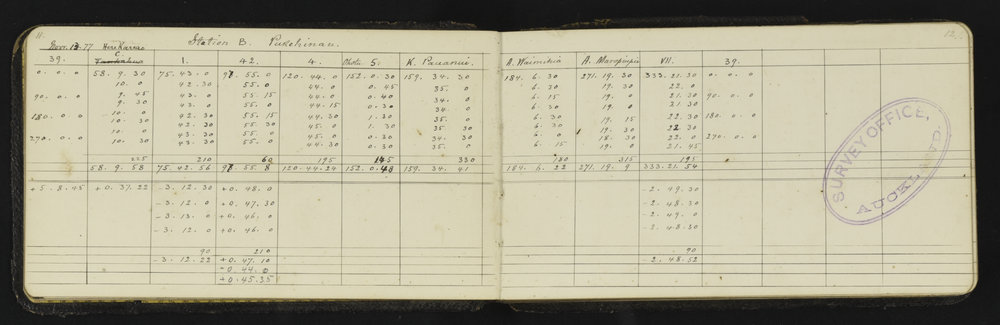 11. 12.
Novr. 13. 77 Station B. Pukehinau.
39. C 1. 42. 4. Okotu 5. K. Pauanui. A. Wairohia A. Maropiupiu VII. 39.
0. 0. 0 58. 9. 30 75. 43. 0 98. 55. 0 120. 44. 0 152. 0. 30 159. 34. 30 184. 6. 30 271. 19. 30 333. 21. 30 0. 0. 0
10. 0 42. 30 55. 0 44. 0 0. 45 35. 0 6. 30 19. 30 22. 0
90. 0. 0 9. 45 43. 0 55. 15 44. 0 0. 40 34. 0 6. 15 19. 0 21. 30 90. 0. 0
9. 30 43. 0 55. 0 44. 15 0. 30 34. 0 6. 30 21. 30
180. 0. 0 10. 0 42. 30 55. 15 44. 30 1. 30 35. 0 6. 30 19. 15 22. 30 180. 0. 0
10. 30 42. 30 55. 30 45. 0 1. 30 35. 0 6. 30 19. 30 22. 30
270. 0. 0 10. 0 43. 30 55. 0 45. 0 0. 30 34. 30 6. 0 18. 30 22. 0 270. 0. 0
10. 30 43. 30 55. 0 44. 30 0. 30 35. 0 6. 15 19. 0 21. 45
225 210 60 195 145 330 180 315 195
58. 9. 58 75. 42. 56 98. 55. 8 120. 44. 24 152. 0. 48 159. 34. 41 184. 6. 22 271. 19. 9 333. 21. 54
+5. 8. 45 +0. 37. 22 -3. 12. 30 +0. 48. 0 -2. 49. 30
-3. 12. 0 +0. 47. 30 -2. 48. 30
-3. 13. 0 +0. 46. 0 -2. 49. 0
-3. 12. 0 +0. 46. 0 -2. 48. 30
90 210 90
-3. 12. 22 +0. 47. 10 -2. 48. 52
-0. 44. 0
+0. 45. 35
SURVEY OFFICE,
AUCKLAND.